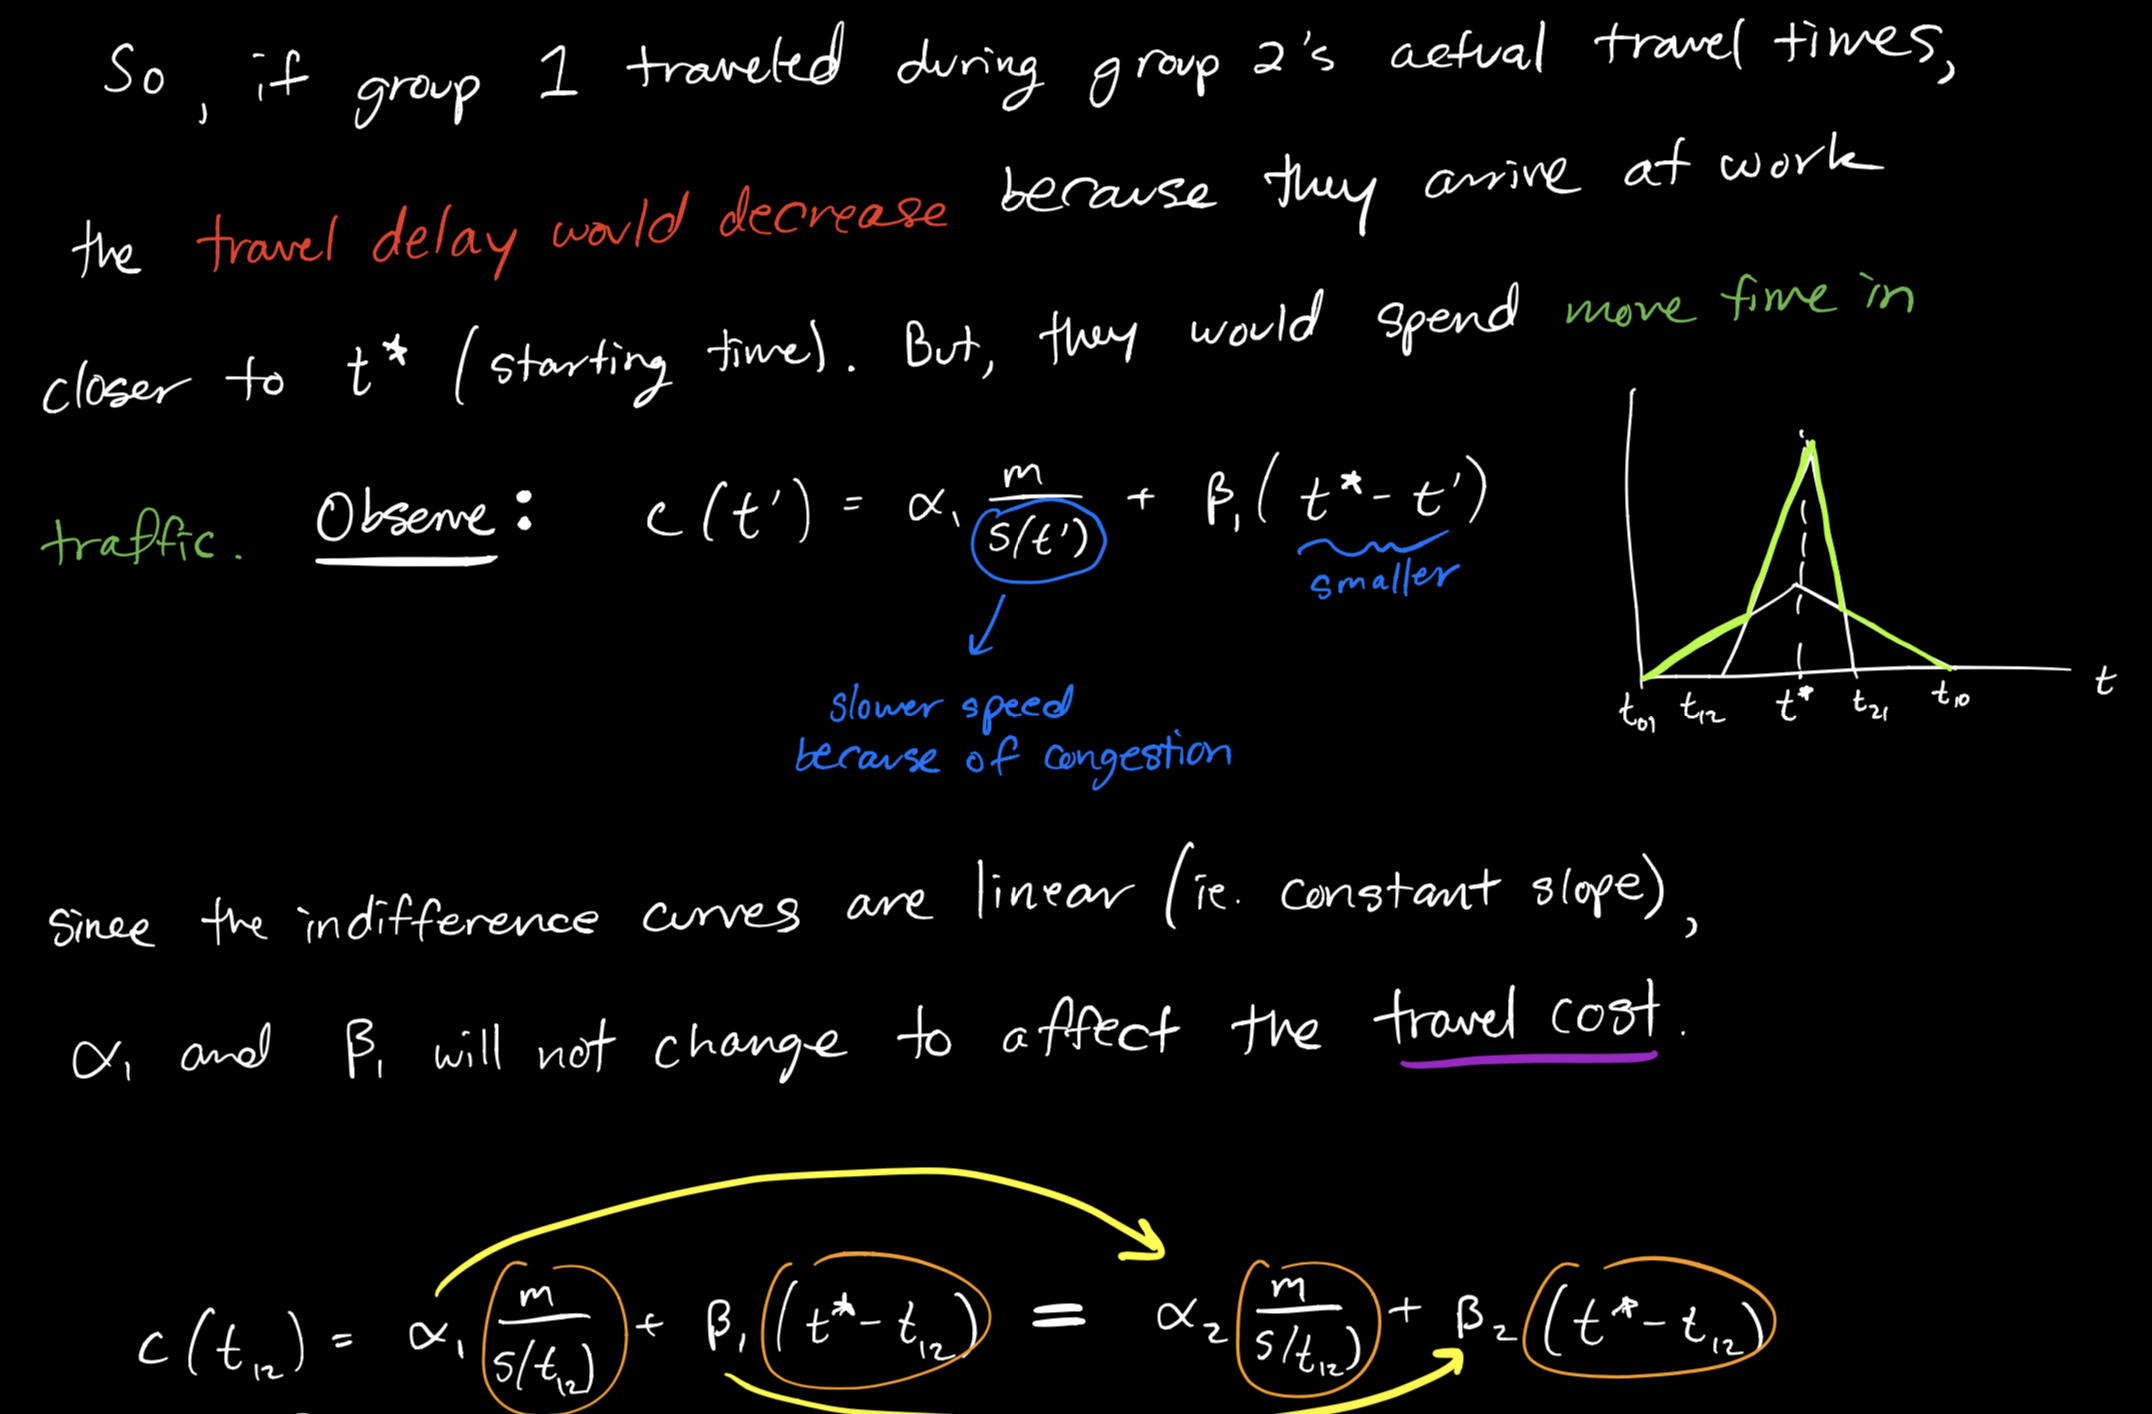 So, if group 1 traveled during group 2's actual travel times,
the travel delay would decrease because they arrive at work
closer to t* (starting time). But, they would spend more time in
traffic. Observe: c(t') = α₁ m/s(t') + β₁(t* - t')
smaller
slower speed
because of congestion
t₀₁ t₁₂ t* t₂₁ t₁₀ t
Since the indifference curves are linear (ie. constant slope),
α₁ and β₁ will not change to affect the travel cost.
c(t₁₂) = α₁ m/s(t₁₂) + β₁(t* - t₁₂) = α₂ m/s(t₁₂) + β₂(t* - t₁₂)